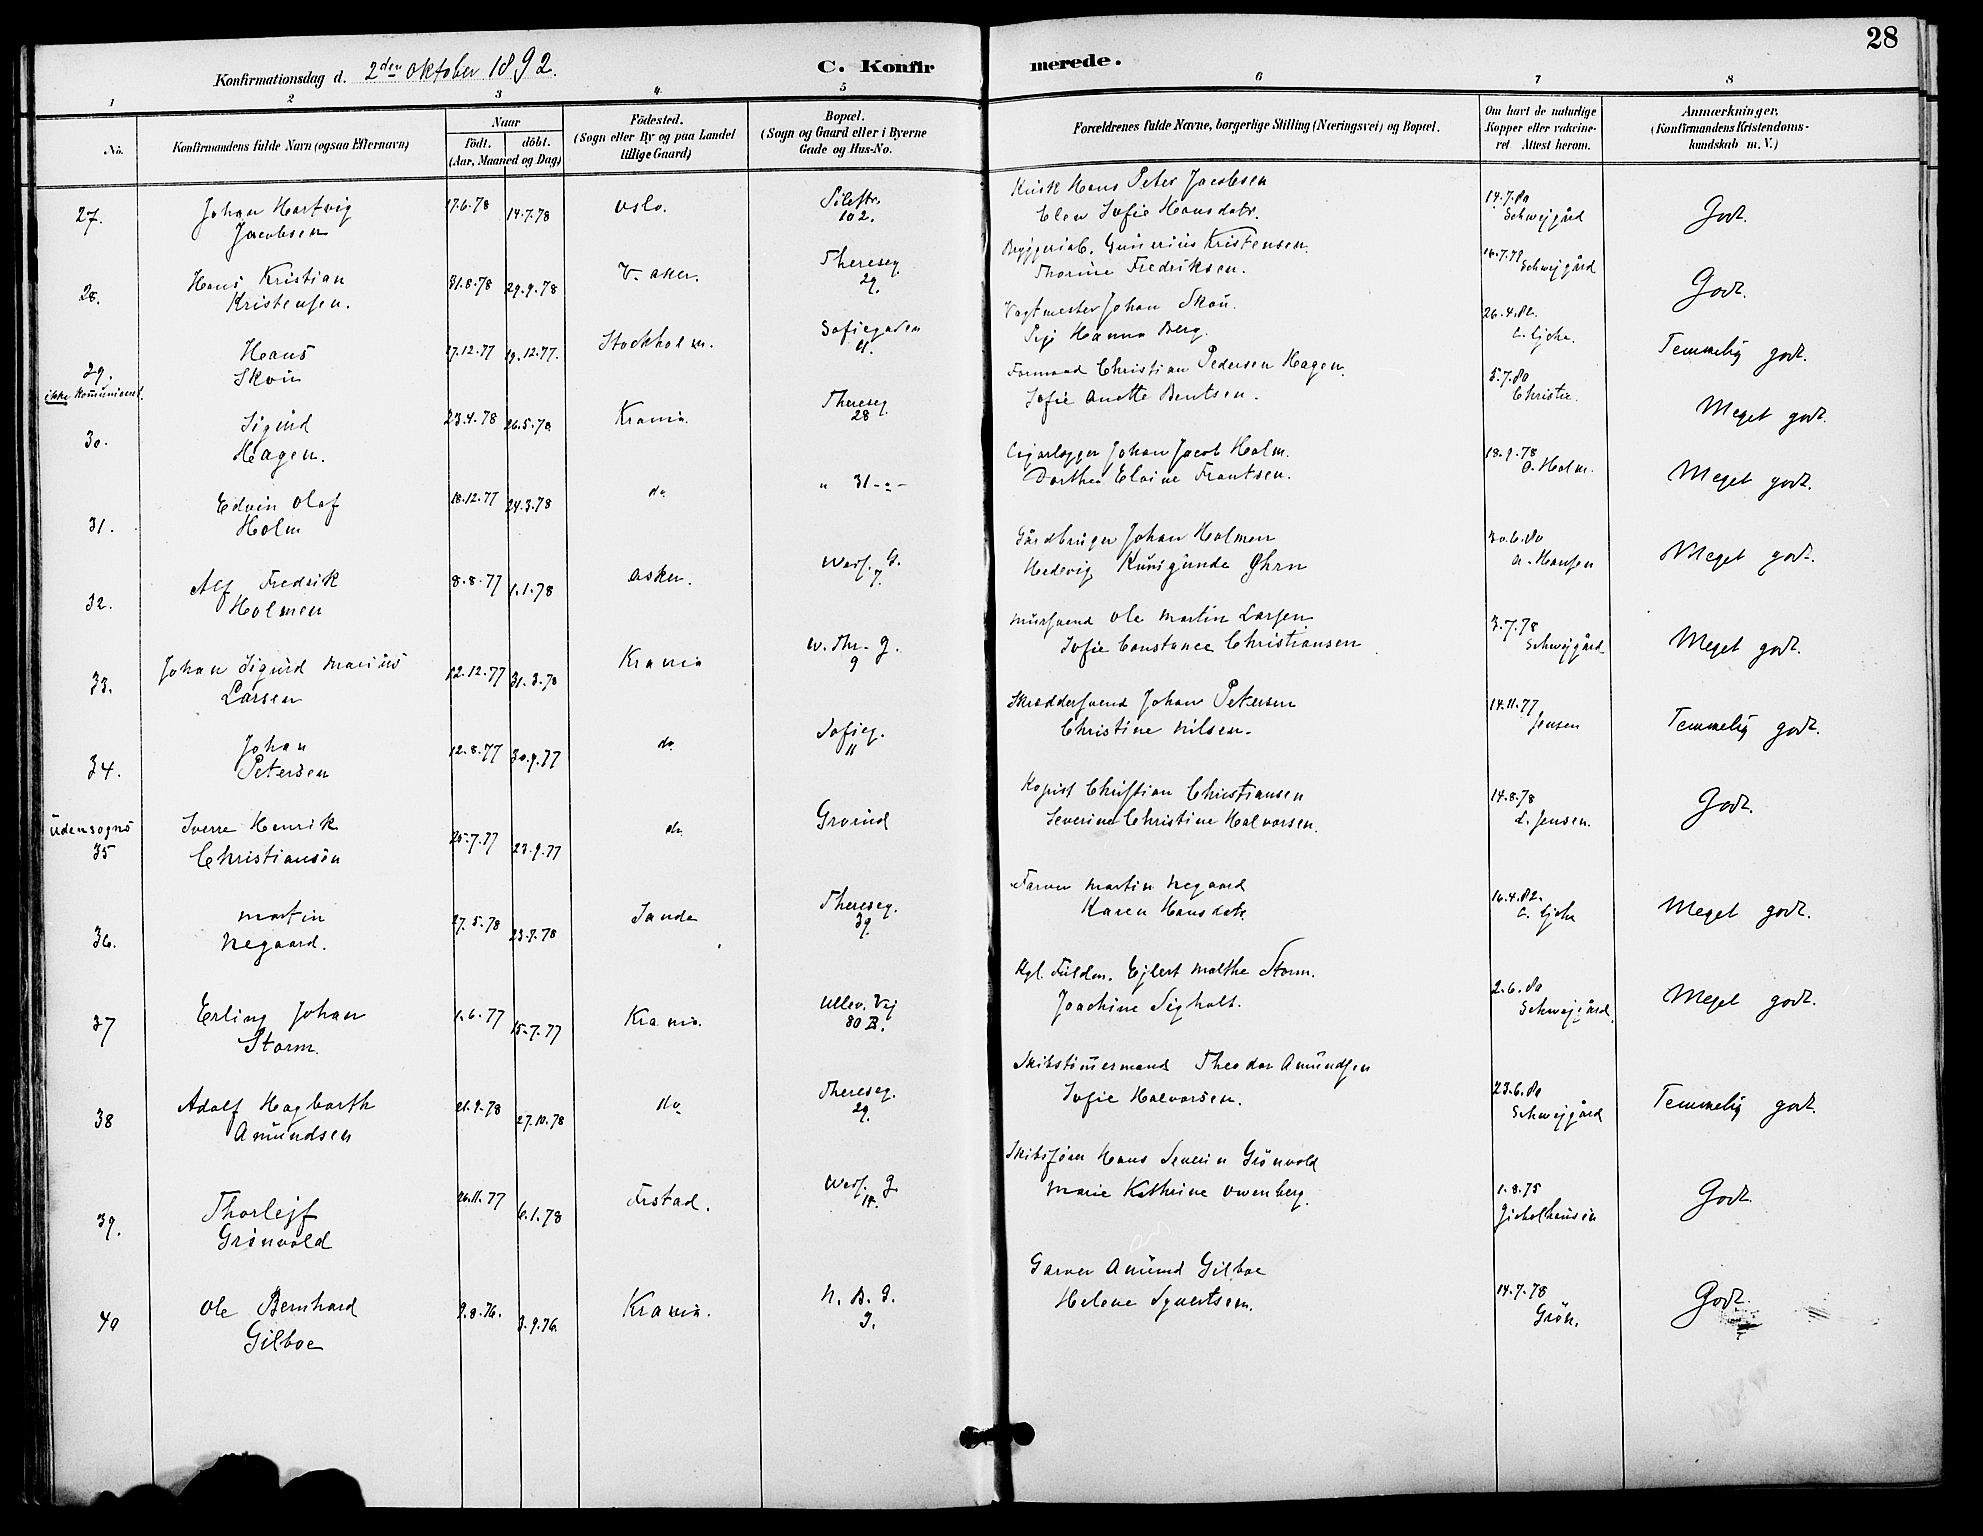 28
Konfirmationsdag d. 2den Oktober 1892.
C. Konfirmerede.
1 2 3 4 5 6 7 8
No.
Konfirmandens fulde Navn (ogsaa Efternavn)
Naar
födt. döbt.
(Aar, Maaned og Dag)
Födested.
(Sogn eller By og paa Landet
tillige Gaard)
Bopæl.
(Sogn og Gaard eller i Byerne
Gade og Hus-No.
Forældrenes fulde Navne, borgerlige Stilling (Næringsvei) og Bopæl.
Om havt de naturlige
Kopper eller vaccine-
ret Attest herom.
Anmærkninger.
(Konfirmandens Kristendoms-
kundskab m.V.)
27. Johan Hartvig Jacobsen 17.6.78 14.7.78 Oslo. Pilestr. 102. Kusk Hans Peter Jacobsen
Elen Sofie Hansdatr. 14.7.80 Schwejgård Godt.
28. Hans Kristian Kristensen. 31.8.78 29.9.78 V. Aker. Thereseg. 29. Gunerius Kristensen.
Thorine Fredriksen. Schwejgård Godt.
29. ikke Komunicent. Hans Skou 17.12.77 19.12.77. Stockholm. Sofiegaden Vagtmester Johan Skou.
Hanna Berg. 26.4.82. Temmelig godt.
30. Sigurd Hagen. 23.4.78 26.5.78 Krania. Thereseg. 28 Formand Christian Pedersen Hagen.
Sofie Anette Bentsen. 5.7.80 Christie. Meget godt.
31. Edvin Olaf Holm 18.12.77 24.3.78 do " 31 -"- Johan Jacob Holm.
Dorthea Elvine Frantsen. 18.9.78 O. Holm. Meget godt.
32. Alf Fredrik Holmen 8.8.77 1.1.78 Asker. G. 7. Gårdbruger Johan Holmen
Hedevig Kunigunde Øhrn 30.6.80 A. Hansen Meget godt.
33. Johan Sigurd Marius Larsen 12.12.77 31.3.78 Krania W. Thr. G. 9 Mursvend Ole Martin Larsen
Sofie Constance Christiansen 3.7.78 Schwejgård Meget godt.
34. Johan Petersen 12.8.77 30.9.77 do Sofieg. 11 Skræddersvend Johan Petersen
Christine Nilsen. 14.11.77 Jensen Temmelig godt.
udensogns 35 Sverre Henrik Christiansen 25.7.77 23.9.77 do. Grorud Kopist Christian Christiansen
Severine Christine Halvorsen. 14.8.78 L. Jensen. Godt.
36. Martin Negaard. 27.5.78 23.7.78 Sande Thereseg. 39. Farver Martin Negaard
Karen Hansdatr 16.4.82. Meget godt.
37 Erling Johan Storm. 1.6.77 15.7.77 Krania. Ullev. Vej 80 B. Kgl. Fuldm. Ejlert Malthe Storm.
Joachine Sigholt. 2.6.80 Schwejgård. Meget godt.
38 Adolf Hagbarth Amundsen 21.9.78 27.10.78 do Thereseg. 29. Skibstømermand Theodor Amundsen
Sofie Halvorsen. 23.6.80 Schwejgård Temmelig godt.
39. Thorlejf Grønvold 26.11.77 6.1.78 G. Skibsfører Hans Severin Grønvold
Marie Kathrine Owenberg. 1.8.75 Godt.
40 Ole Bernhard Gilboe 9.8.76. 3.9.76. Krania. N. B. G. 3. Garver Amund Gilboe
Helene Syvertsen. 14.7.78 Grön. Godt.